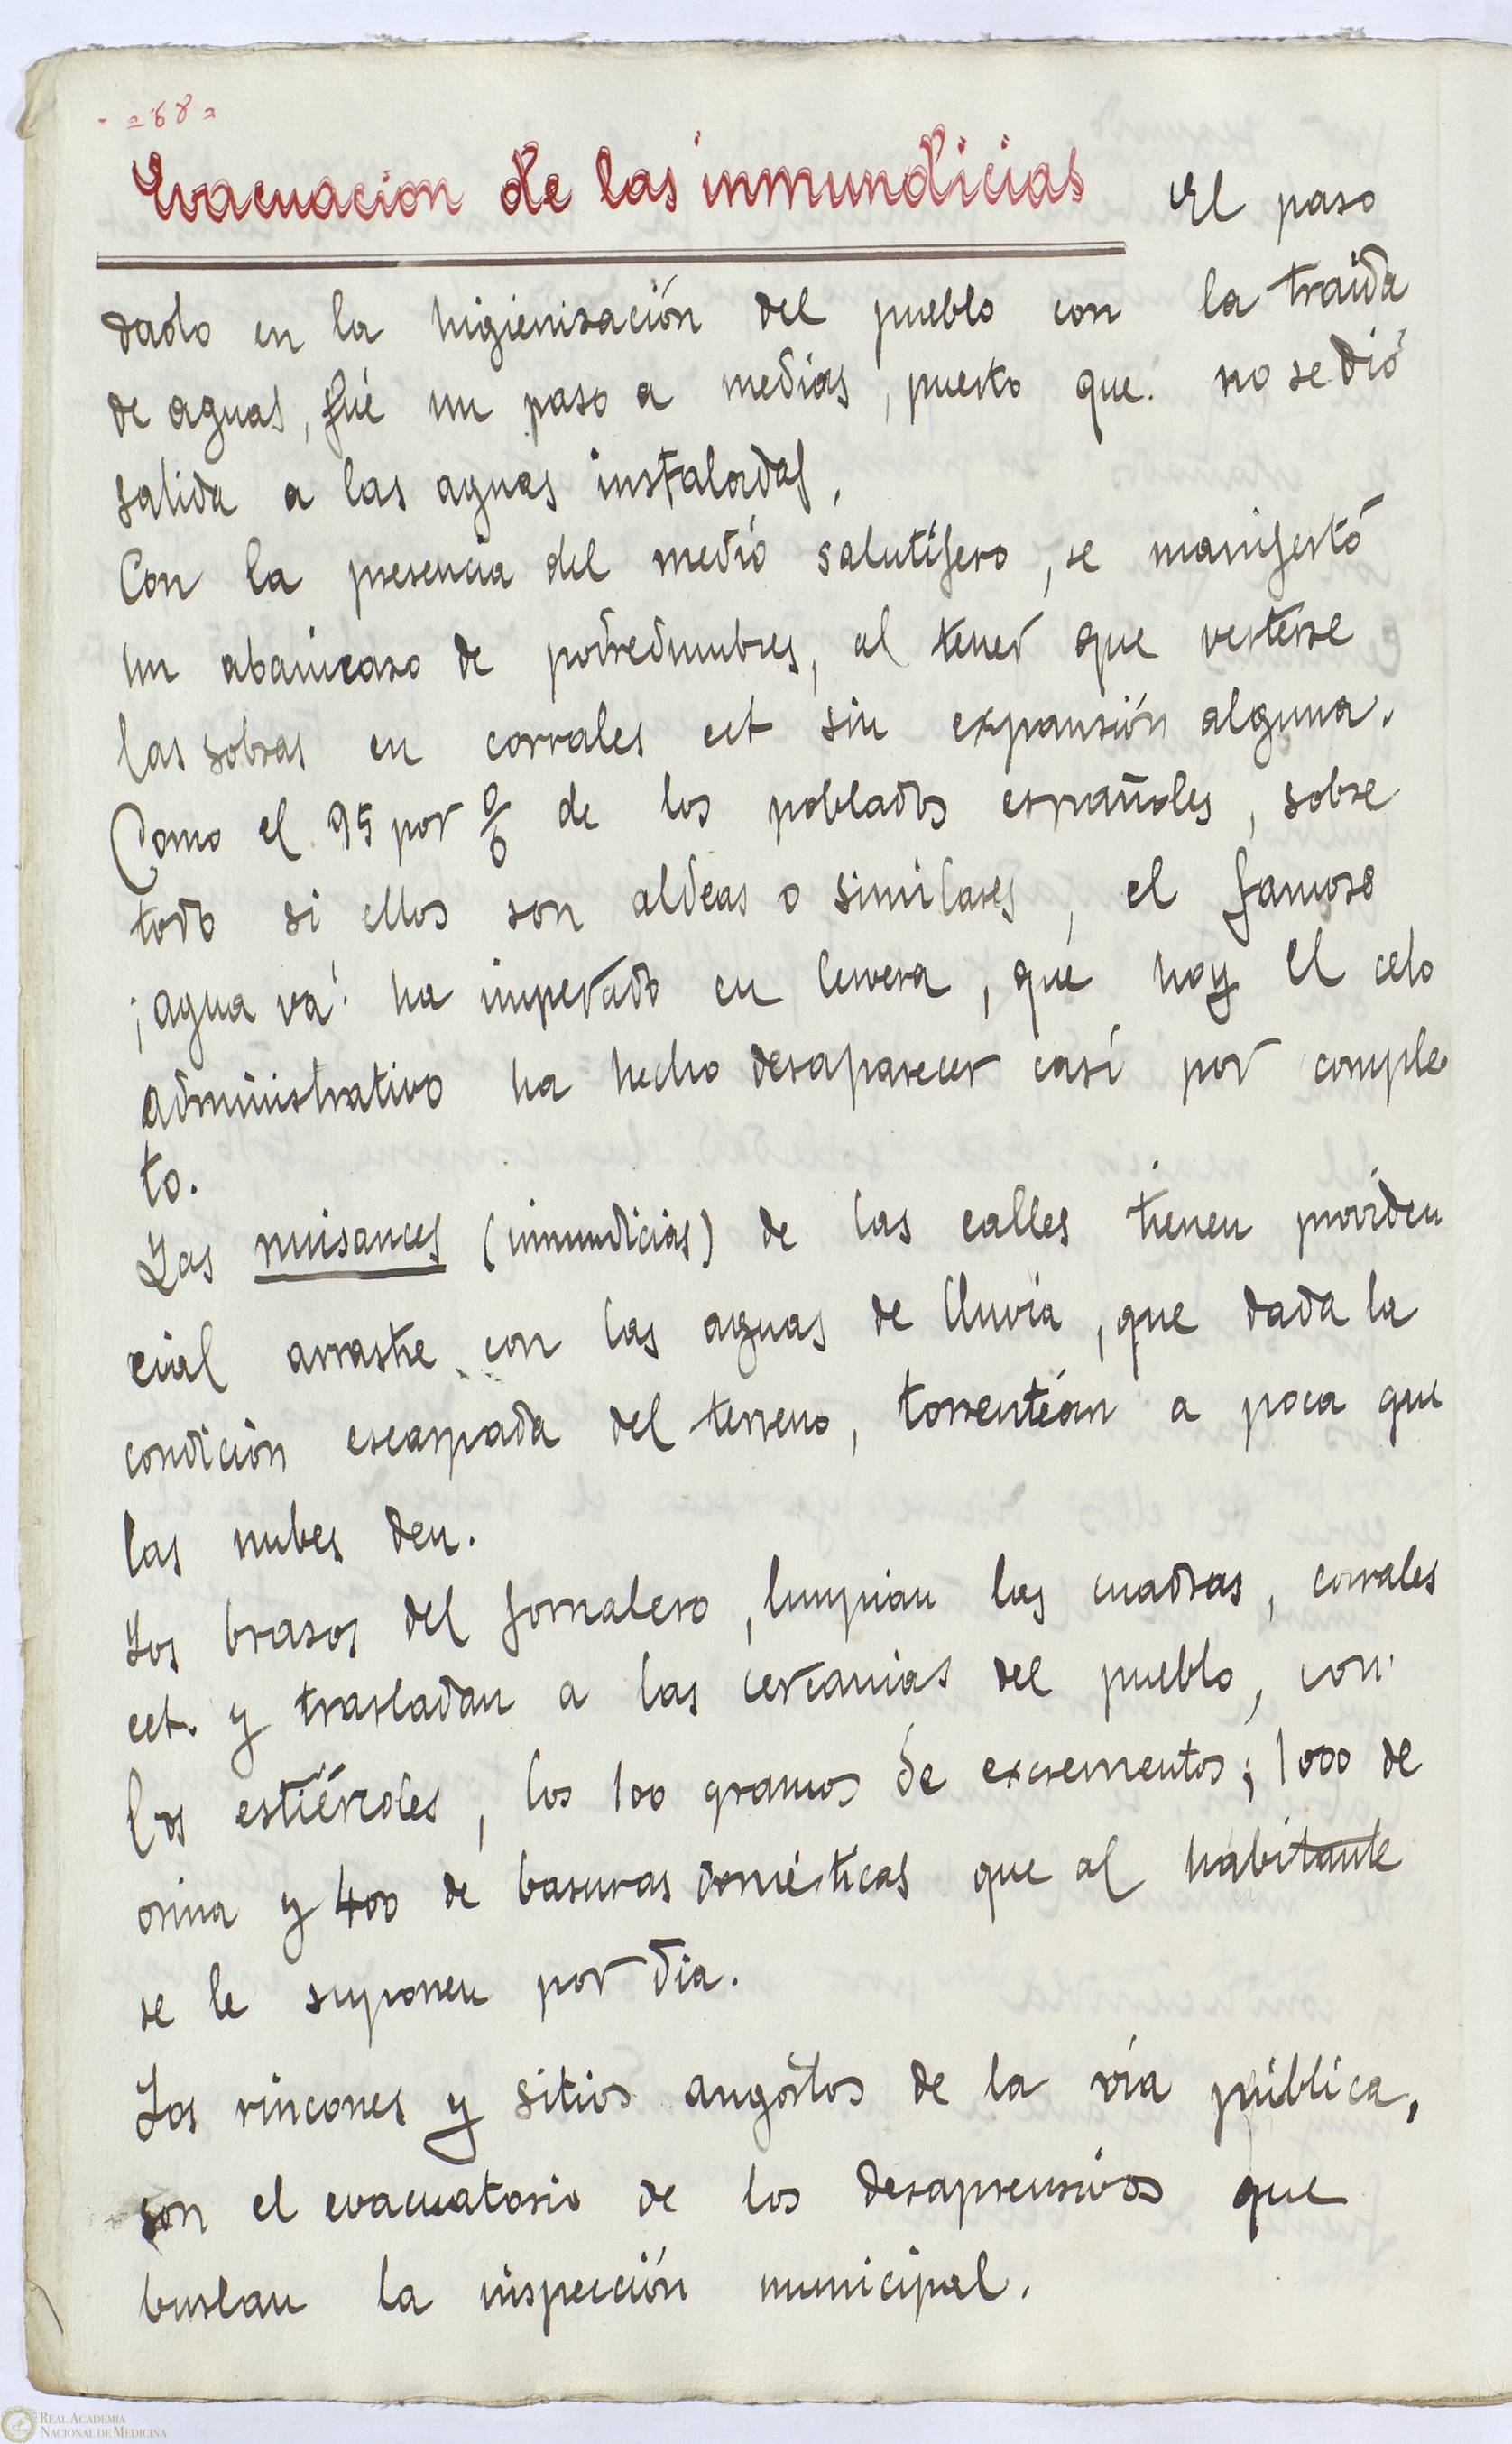 =68=
Evacuacion de las inmundicias El paso
dado en la higienización del pueblo con la traida
de aguas, fué un paso a medias, puesto que no se dió
salida a las aguas instaladas.
Con la presencia del medio salutífero, se manifestó
un abanicazo de podredumbres, al tener que verterse
las sobras en corrales ect sin expansión alguna.
Como el 95 por % de los poblados españoles, sobre
todo si ellos son aldeas o similares, el famoso
¡agua va! ha imperado en Cervera, que hoy el celo
administrativo ha hecho desaparecer casi por comple
to.
Las nuisances (inmundicias) de las calles tienen providen
cial arrastre con las aguas de lluvia, que dada la
condición escarpada del terreno, torrentéan a poca que
las nubes den.
Los brazos del jornalero, limpian las cuadras, corrales
ect. y trasladan a las cercanias del pueblo, con
los estiércoles, los 100 gramos de excrementos; 1000 de
orina y 400 de basuras domésticas que al habitante
se le suponen por dia.
Los rincones y sitios angostos de la vía pública,
son el evacuatorio de los desaprensivos que
burlan la inspección municipal.
REAL ACADEMIA
NACIONAL DE MEDICINA